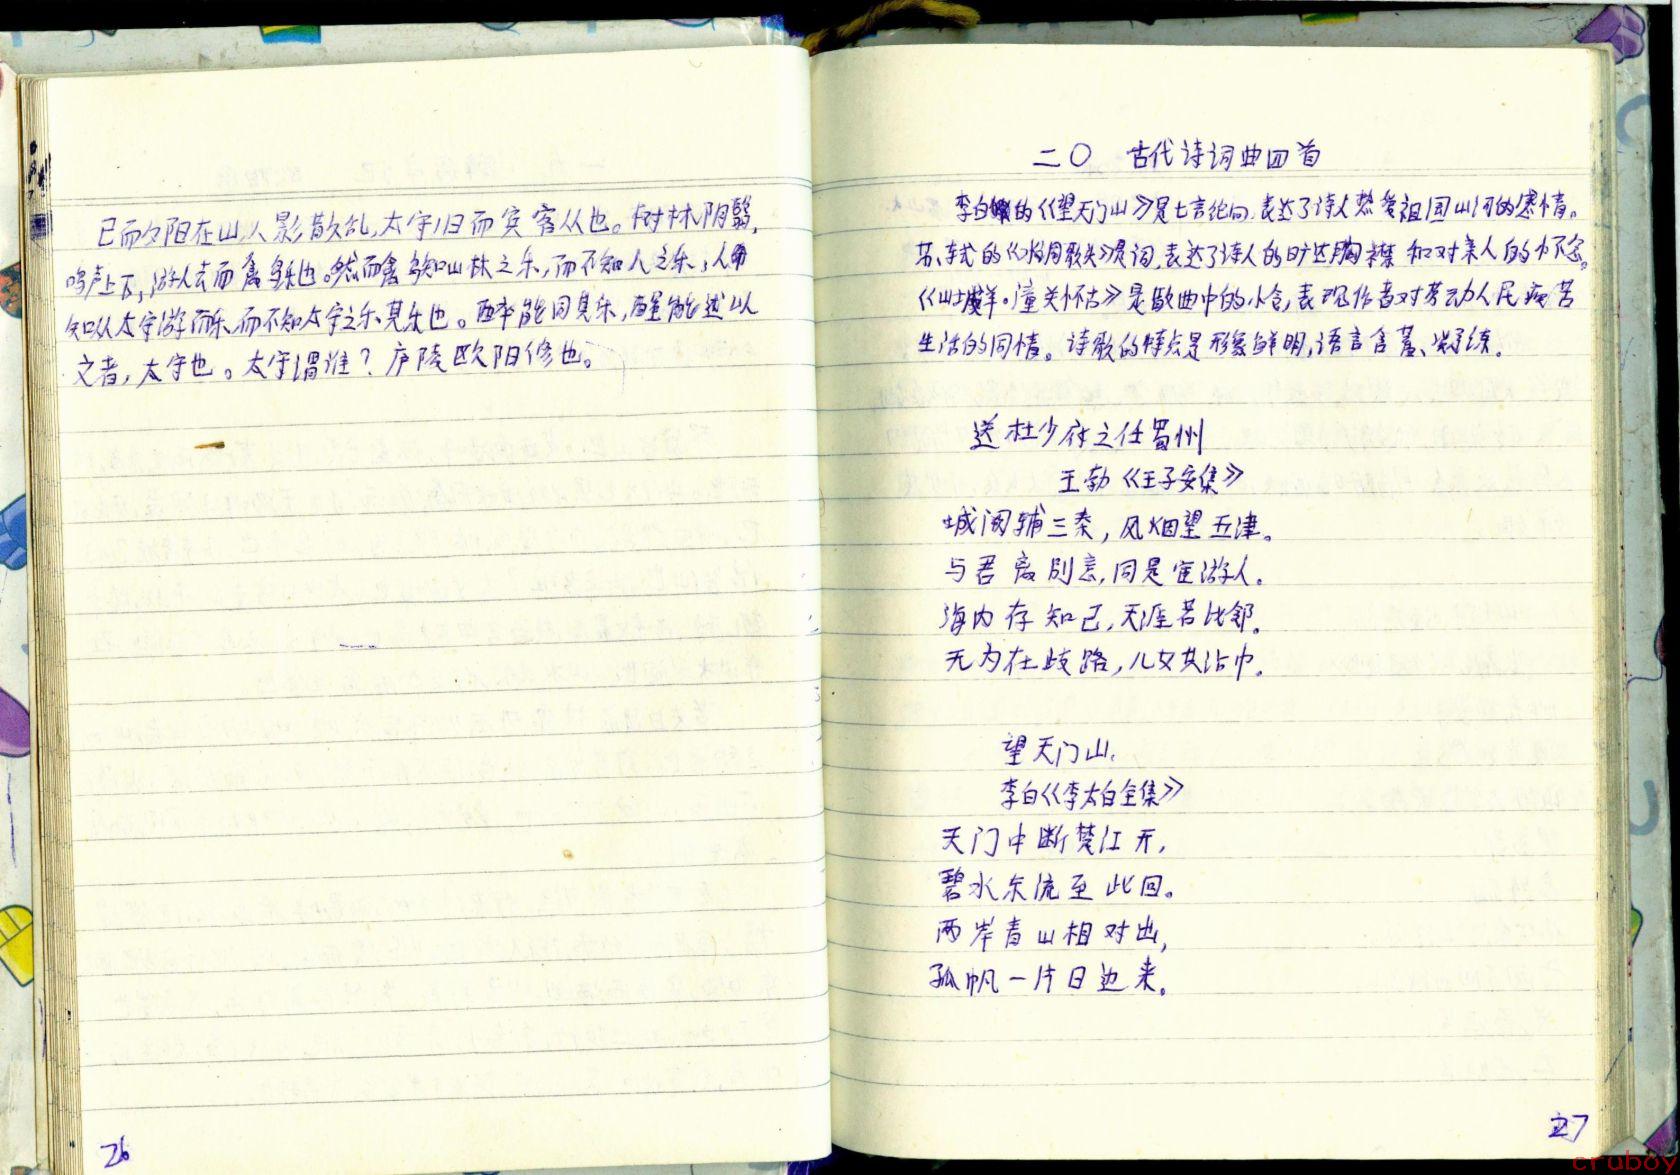 已而夕阳在山,人影散乱,太守归而宾客从也。树林阴翳,
鸣声上下,游人去而禽鸟乐也。然而禽鸟知山林之乐,而不知人之乐;人
知从太守游而乐,而不知太守之乐其乐也。醉能同其乐,醒能述以
文者,太守也。太守谓谁?庐陵欧阳修也。
26
二〇 古代诗词曲四首
李白的《望天门山》是七言绝句,表达了诗人热爱祖国山河的感情。
苏轼的《水调歌头》是词,表达了诗人的旷达胸襟和对亲人的怀念。
《山坡羊·潼关怀古》是散曲中的小令,表现作者对劳动人民痛苦
生活的同情。诗歌的特点是形象鲜明,语言含蓄、凝练。
送杜少府之任蜀州
王勃《王子安集》
城阙辅三秦,风烟望五津。
与君离别意,同是宦游人。
海内存知己,天涯若比邻。
无为在歧路,儿女共沾巾。
望天门山
李白《李太白全集》
天门中断楚江开,
碧水东流至此回。
两岸青山相对出,
孤帆一片日边来。
27
cruboy